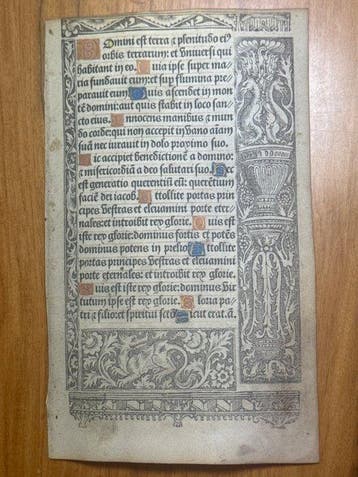 Domini est terra ⁊ plenitudo ei⁹
orbis terrarum: et vniuersi qui
habitant in eo. Quia ipse super ma
ria fundauit eum: et sup flumina pre
parauit eum. Quis ascendet in mon
tē domini: aut quis stabit in loco san
cto eius. Innocens manibus ⁊ mun
do corde: qui non accepit in vano aīam
suā nec iurauit in dolo proximo suo.
Hic accipiet benedictionē a domino:
⁊ misericordiā a deo salutari suo. Hec
est generatio querentiū eū: querētium
faciē dei iacob. Attollite portas prin
cipes vestras et eleuamini porte eter
nales: et introibit rex glorie. Quis est
iste rex glorie: dominus fortis et potēs
dominus potens in prelio. Attollite
portas principes vestras et eleuamini
porte eternales: et introibit rex glorie.
Quis est iste rex glorie: dominus vir
tutum ipse est rex glorie. Gloria pa-
tri ⁊ filio: et spiritui sctō. Sicut erat. añ.